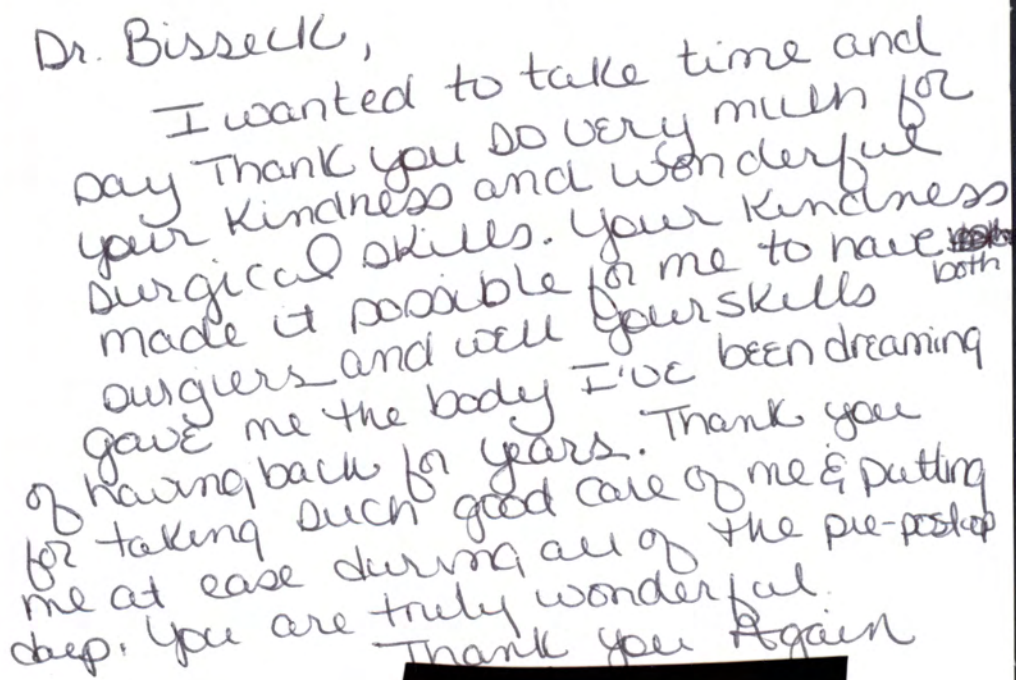 Dr. Bisseck,
I wanted to take time and
say Thank you so very much for
your kindness and wonderful
surgical skills. Your kindness
made it possible for me to have both
surgiers and well your skills
gave me the body I've been dreaming
of having back for years. Thank you
for taking such good care of me & putting
me at ease during all of the pre-post op
You are truly wonderful.
Thank you Again